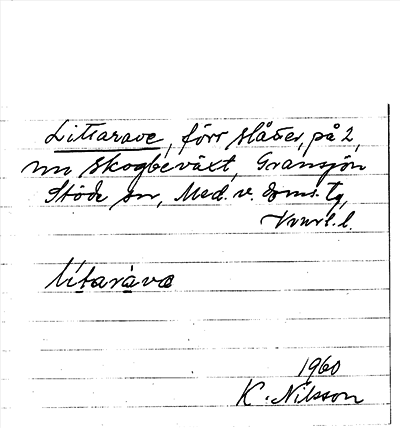 Littarave, förr slåtter, på 2,
nu skogbeväxt, Gransjön
Stöde sn, Med. v. doms. tg,
Vnrl. l.
lìtaràva
1960
K. Nilsson